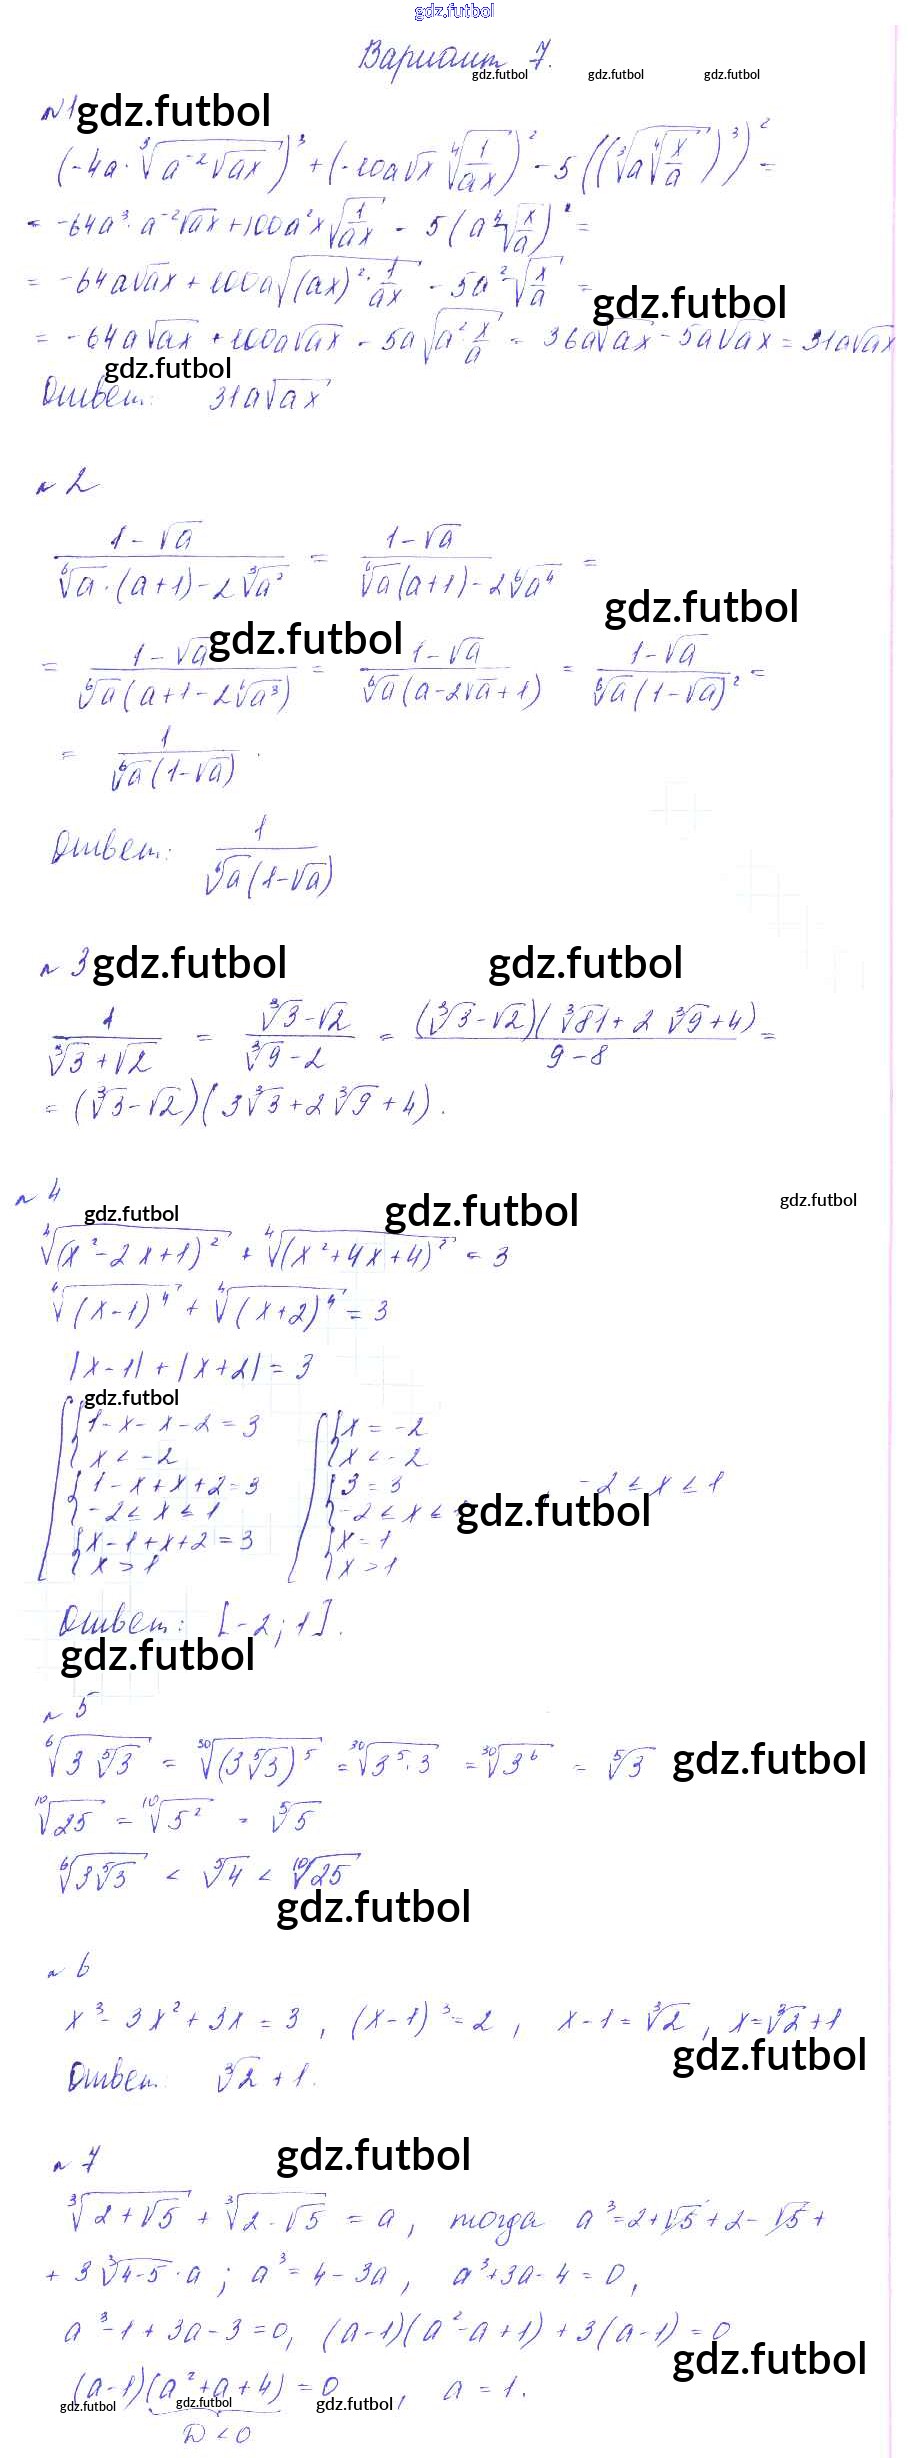 gdz.futbol
Вариант 7.
gdz.futbol gdz.futbol gdz.futbol
№1 gdz.futbol
(-4a·∛(a⁻²√(ax)))³ + (-10a√x ∜(1/(ax)))² - 5((∛(a∜(x/a)))³)² =
= -64a³·a⁻²√(ax) + 100a²x√(1/(ax)) - 5(a∜(x/a))² =
= -64a√(ax) + 100a√((ax)²·1/(ax)) - 5a²√(x/a) =
gdz.futbol
= -64a√(ax) + 100a√(ax) - 5a√(a²·x/a) = 36a√(ax) - 5a√(ax) = 31a√(ax)
gdz.futbol
Ответ: 31a√(ax)
№2
(1-√a)/(⁶√a·(a+1)-2∛a²) = (1-√a)/(⁶√a(a+1)-2⁶√a⁴) =
gdz.futbol
gdz.futbol
= (1-√a)/(⁶√a(a+1-2⁶√a³)) = (1-√a)/(⁶√a(a-2√a+1)) = (1-√a)/(⁶√a(1-√a)²) =
= 1/(⁶√a(1-√a)).
Ответ: 1/(⁶√a(1-√a))
№3 gdz.futbol gdz.futbol
1/(∛3+√2) = (∛3-√2)/(∛9-2) = ((∛3-√2)(∛81+2∛9+4))/(9-8) =
= (∛3-√2)(3∛3+2∛9+4).
№4
gdz.futbol gdz.futbol gdz.futbol
∜((x²-2x+1)²) + ∜((x²+4x+4)²) = 3
∜((x-1)⁴) + ∜((x+2)⁴) = 3
|x-1| + |x+2| = 3
gdz.futbol
1-x-x-2=3 x=-2
x<-2 x<-2
1-x+x+2=3 3=3 -2≤x≤1
-2≤x≤1 -2≤x≤1 gdz.futbol
x-1+x+2=3 x=1
x>1 x>1
Ответ: [-2;1].
gdz.futbol
№5
⁶√(3⁵√3) = ³⁰√((3⁵√3)⁵) = ³⁰√(3⁵·3) = ³⁰√3⁶ = ⁵√3 gdz.futbol
¹⁰√25 = ¹⁰√5² = ⁵√5
⁶√(3⁵√3) < ⁵√4 < ¹⁰√25
gdz.futbol
№6
x³-3x²+3x=3, (x-1)³=2, x-1=∛2, x=∛2+1
gdz.futbol
Ответ: ∛2+1.
№7 gdz.futbol
∛(2+√5) + ∛(2-√5) = a, тогда a³=2+√5+2-√5+
+3∛(4-5)·a; a³=4-3a, a³+3a-4=0,
a³-1+3a-3=0, (a-1)(a²-a+1)+3(a-1)=0
gdz.futbol
(a-1)(a²+a+4)=0, a=1.
gdz.futbol gdz.futbol gdz.futbol
D<0